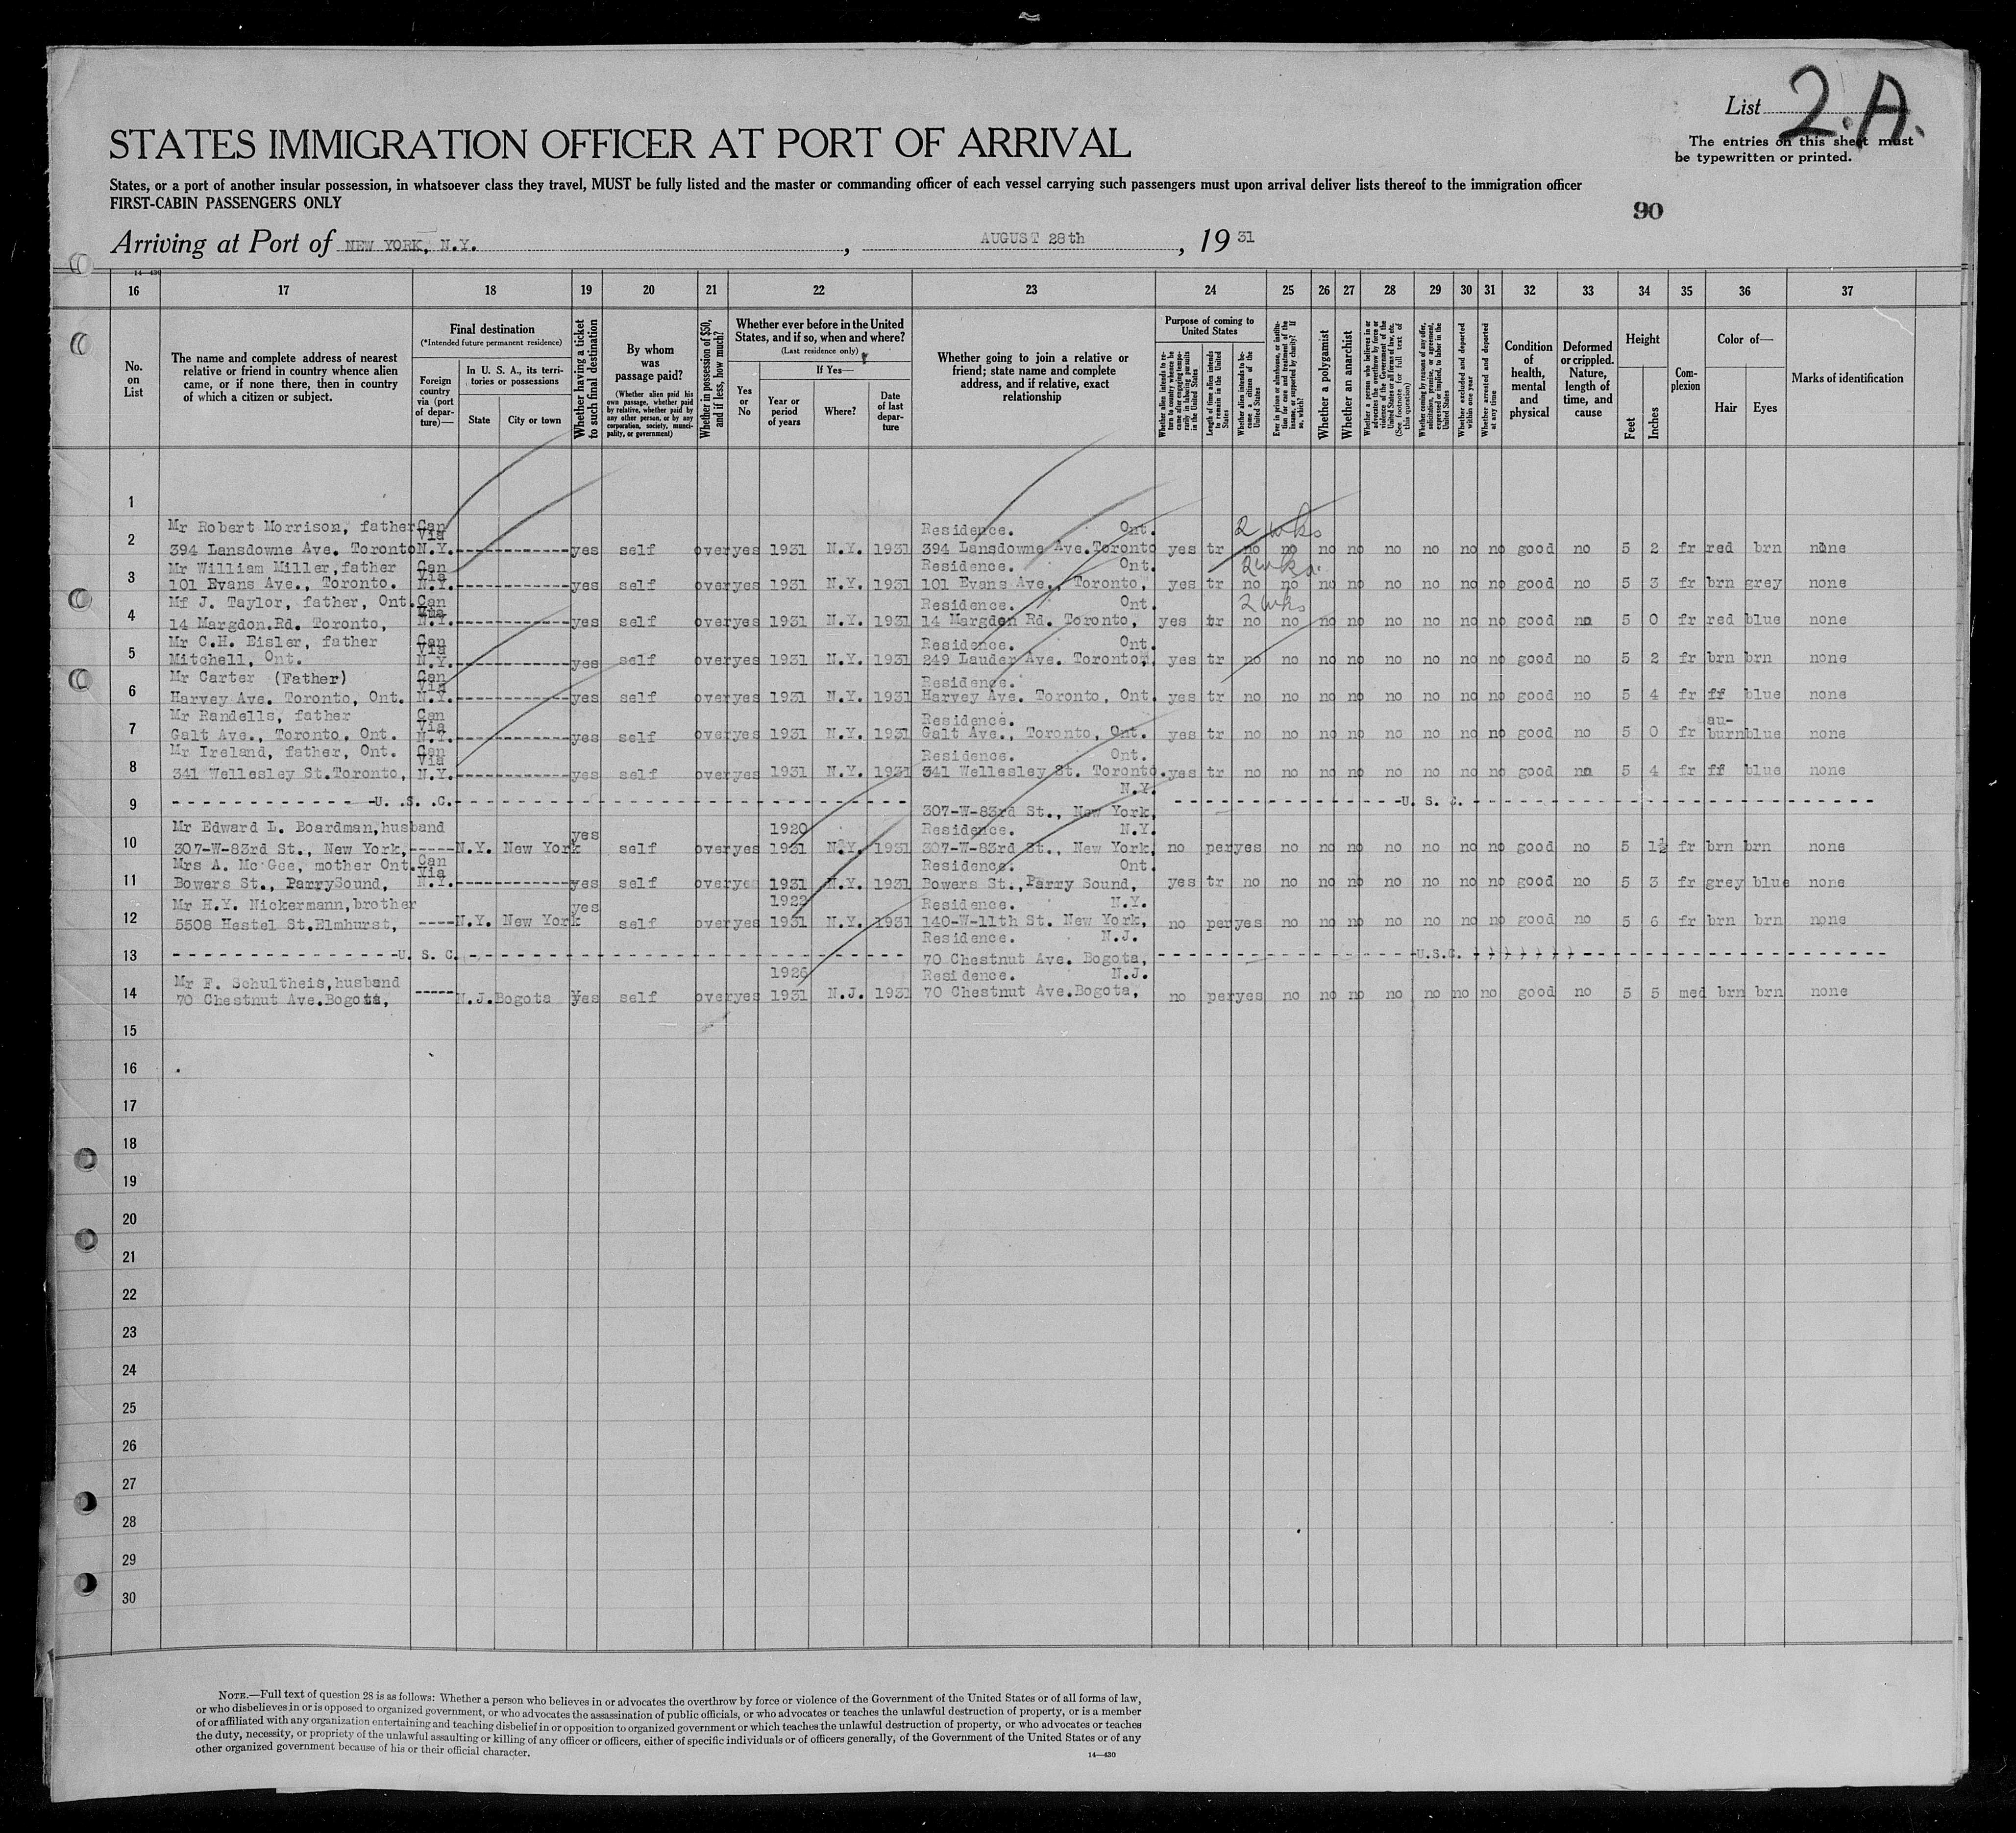 List 2.A.
The entries on this sheet must
be typewritten or printed.
STATES IMMIGRATION OFFICER AT PORT OF ARRIVAL
States, or a port of another insular possession, in whatsoever class they travel, MUST be fully listed and the master or commanding officer of each vessel carrying such passengers must upon arrival deliver lists thereof to the immigration officer
FIRST-CABIN PASSENGERS ONLY
90
Arriving at Port of NEW YORK, N.Y. , AUGUST 28th , 19 31
14—430
16 17 18 19 20 21 22 23 24 25 26 27 28 29 30 31 32 33 34 35 36 37
No. on List
The name and complete address of nearest relative or friend in country whence alien came, or if none there, then in country of which a citizen or subject.
Final destination
(*Intended future permanent residence)
Foreign country via (port of departure)—
In U. S. A., its territories or possessions
State
City or town
Whether having a ticket to such final destination
By whom was passage paid?
(Whether alien paid his own passage, whether paid by relative, whether paid by any other person, or by any corporation, society, municipality, or government)
Whether in possession of $50, and if less, how much?
Whether ever before in the United States, and if so, when and where?
(Last residence only)
Yes or No
If Yes—
Year or period of years
Where?
Date of last departure
Whether going to join a relative or friend; state name and complete address, and if relative, exact relationship
Purpose of coming to United States
Whether alien intends to return to country whence he came after engaging temporarily in laboring pursuits in the United States
Length of time alien intends to remain in the United States
Whether alien intends to become a citizen of the United States
Ever in prison or almshouse, or institution for care and treatment of the insane, or supported by charity? If so, which?
Whether a polygamist
Whether an anarchist
Whether a person who believes in or advocates the overthrow by force or violence of the Government of the United States or all forms of law, etc. (See footnote for full text of this question)
Whether coming by reasons of any offer, solicitation, promise, or agreement, expressed or implied, to labor in the United States
Whether excluded and deported within one year
Whether arrested and deported at any time
Condition of health, mental and physical
Deformed or crippled. Nature, length of time, and cause
Height
Feet
Inches
Complexion
Color of—
Hair
Eyes
Marks of identification
1
Mr Robert Morrison, father Can Via Residence. Ont. 2 wks
2 394 Lansdowne Ave. Toronto N.Y. yes self over yes 1931 N.Y. 1931 394 Lansdowne Ave. Toronto yes tr no no no no no no no no good no 5 2 fr red brn none
Mr William Miller, father Can Via Residence. Ont. 2 wks.
3 101 Evans Ave., Toronto. N.Y. yes self over yes 1931 N.Y. 1931 101 Evans Ave., Toronto, yes tr no no no no no no no no good no 5 3 fr brn grey none
Mf J. Taylor, father, Ont. Can Via Residence. Ont. 2 wks
4 14 Margdon.Rd. Toronto, N.Y. yes self over yes 1931 N.Y. 1931 14 Margdon Rd. Toronto, yes tr no no no no no no no no good no 5 0 fr red blue none
Mr C.H. Eisler, father Can Via Residence. Ont.
5 Mitchell, Ont. N.Y. yes self over yes 1931 N.Y. 1931 249 Lauder Ave. Toronto, yes tr no no no no no no no no good no 5 2 fr brn brn none
Mr Carter (Father) Can Via Residence.
6 Harvey Ave. Toronto, Ont. N.Y. yes self over yes 1931 N.Y. 1931 Harvey Ave. Toronto, Ont. yes tr no no no no no no no no good no 5 4 fr ff blue none
Mr Randells, father Can Via Residence. au-
7 Galt Ave., Toronto, Ont. N.Y. yes self over yes 1931 N.Y. 1931 Galt Ave., Toronto, Ont. yes tr no no no no no no no no good no 5 0 fr burn blue none
Mr Ireland, father, Ont. Can Via Residence. Ont.
8 341 Wellesley St.Toronto, N.Y. yes self over yes 1931 N.Y. 1931 341 Wellesley St. Toronto. yes tr no no no no no no no no good no 5 4 fr ff blue none
N.Y.
9 U. S. C. 307-W-83rd St., New York, U. S. C.
Mr Edward L. Boardman, husband yes 1920 Residence. N.Y.
10 307-W-83rd St., New York, N.Y. New York self over yes 1931 N.Y. 1931 307-W-83rd St., New York, no per yes no no no no no no no good no 5 1½ fr brn brn none
Mrs A. Mc Gee, mother Ont. Can Via Residence. Ont.
11 Bowers St., ParrySound, N.Y. yes self over yes 1931 N.Y. 1931 Bowers St., Parry Sound, yes tr no no no no no no no no good no 5 3 fr grey blue none
Mr H.Y. Nickermann, brother yes 1922 Residence. N.Y.
12 5508 Hestel St.Elmhurst, N.Y. New York self over yes 1931 N.Y. 1931 140-W-11th St. New York, no per yes no no no no no no no good no 5 6 fr brn brn none
Residence. N.J.
13 U. S. C. 70 Chestnut Ave. Bogota, U.S.C.
Mr F. Schultheis, husband 1926 Residence. N.J.
14 70 Chestnut Ave.Bogota, N.J. Bogota yes self over yes 1931 N.J. 1931 70 Chestnut Ave.Bogota, no per yes no no no no no no no good no 5 5 med brn brn none
15
16
17
18
19
20
21
22
23
24
25
26
27
28
29
30
NOTE.—Full text of question 28 is as follows: Whether a person who believes in or advocates the overthrow by force or violence of the Government of the United States or of all forms of law,
or who disbelieves in or is opposed to organized government, or who advocates the assassination of public officials, or who advocates or teaches the unlawful destruction of property, or is a member
of or affiliated with any organization entertaining and teaching disbelief in or opposition to organized government or which teaches the unlawful destruction of property, or who advocates or teaches
the duty, necessity, or propriety of the unlawful assaulting or killing of any officer or officers, either of specific individuals or of officers generally, of the Government of the United States or of any
other organized government because of his or their official character.
14—430